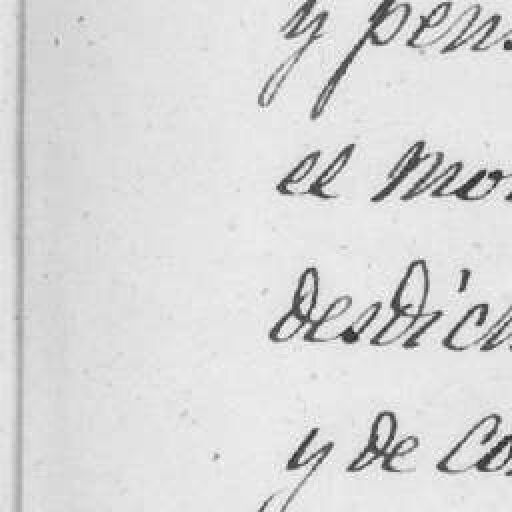 y pens
el mo
desdich
y de co